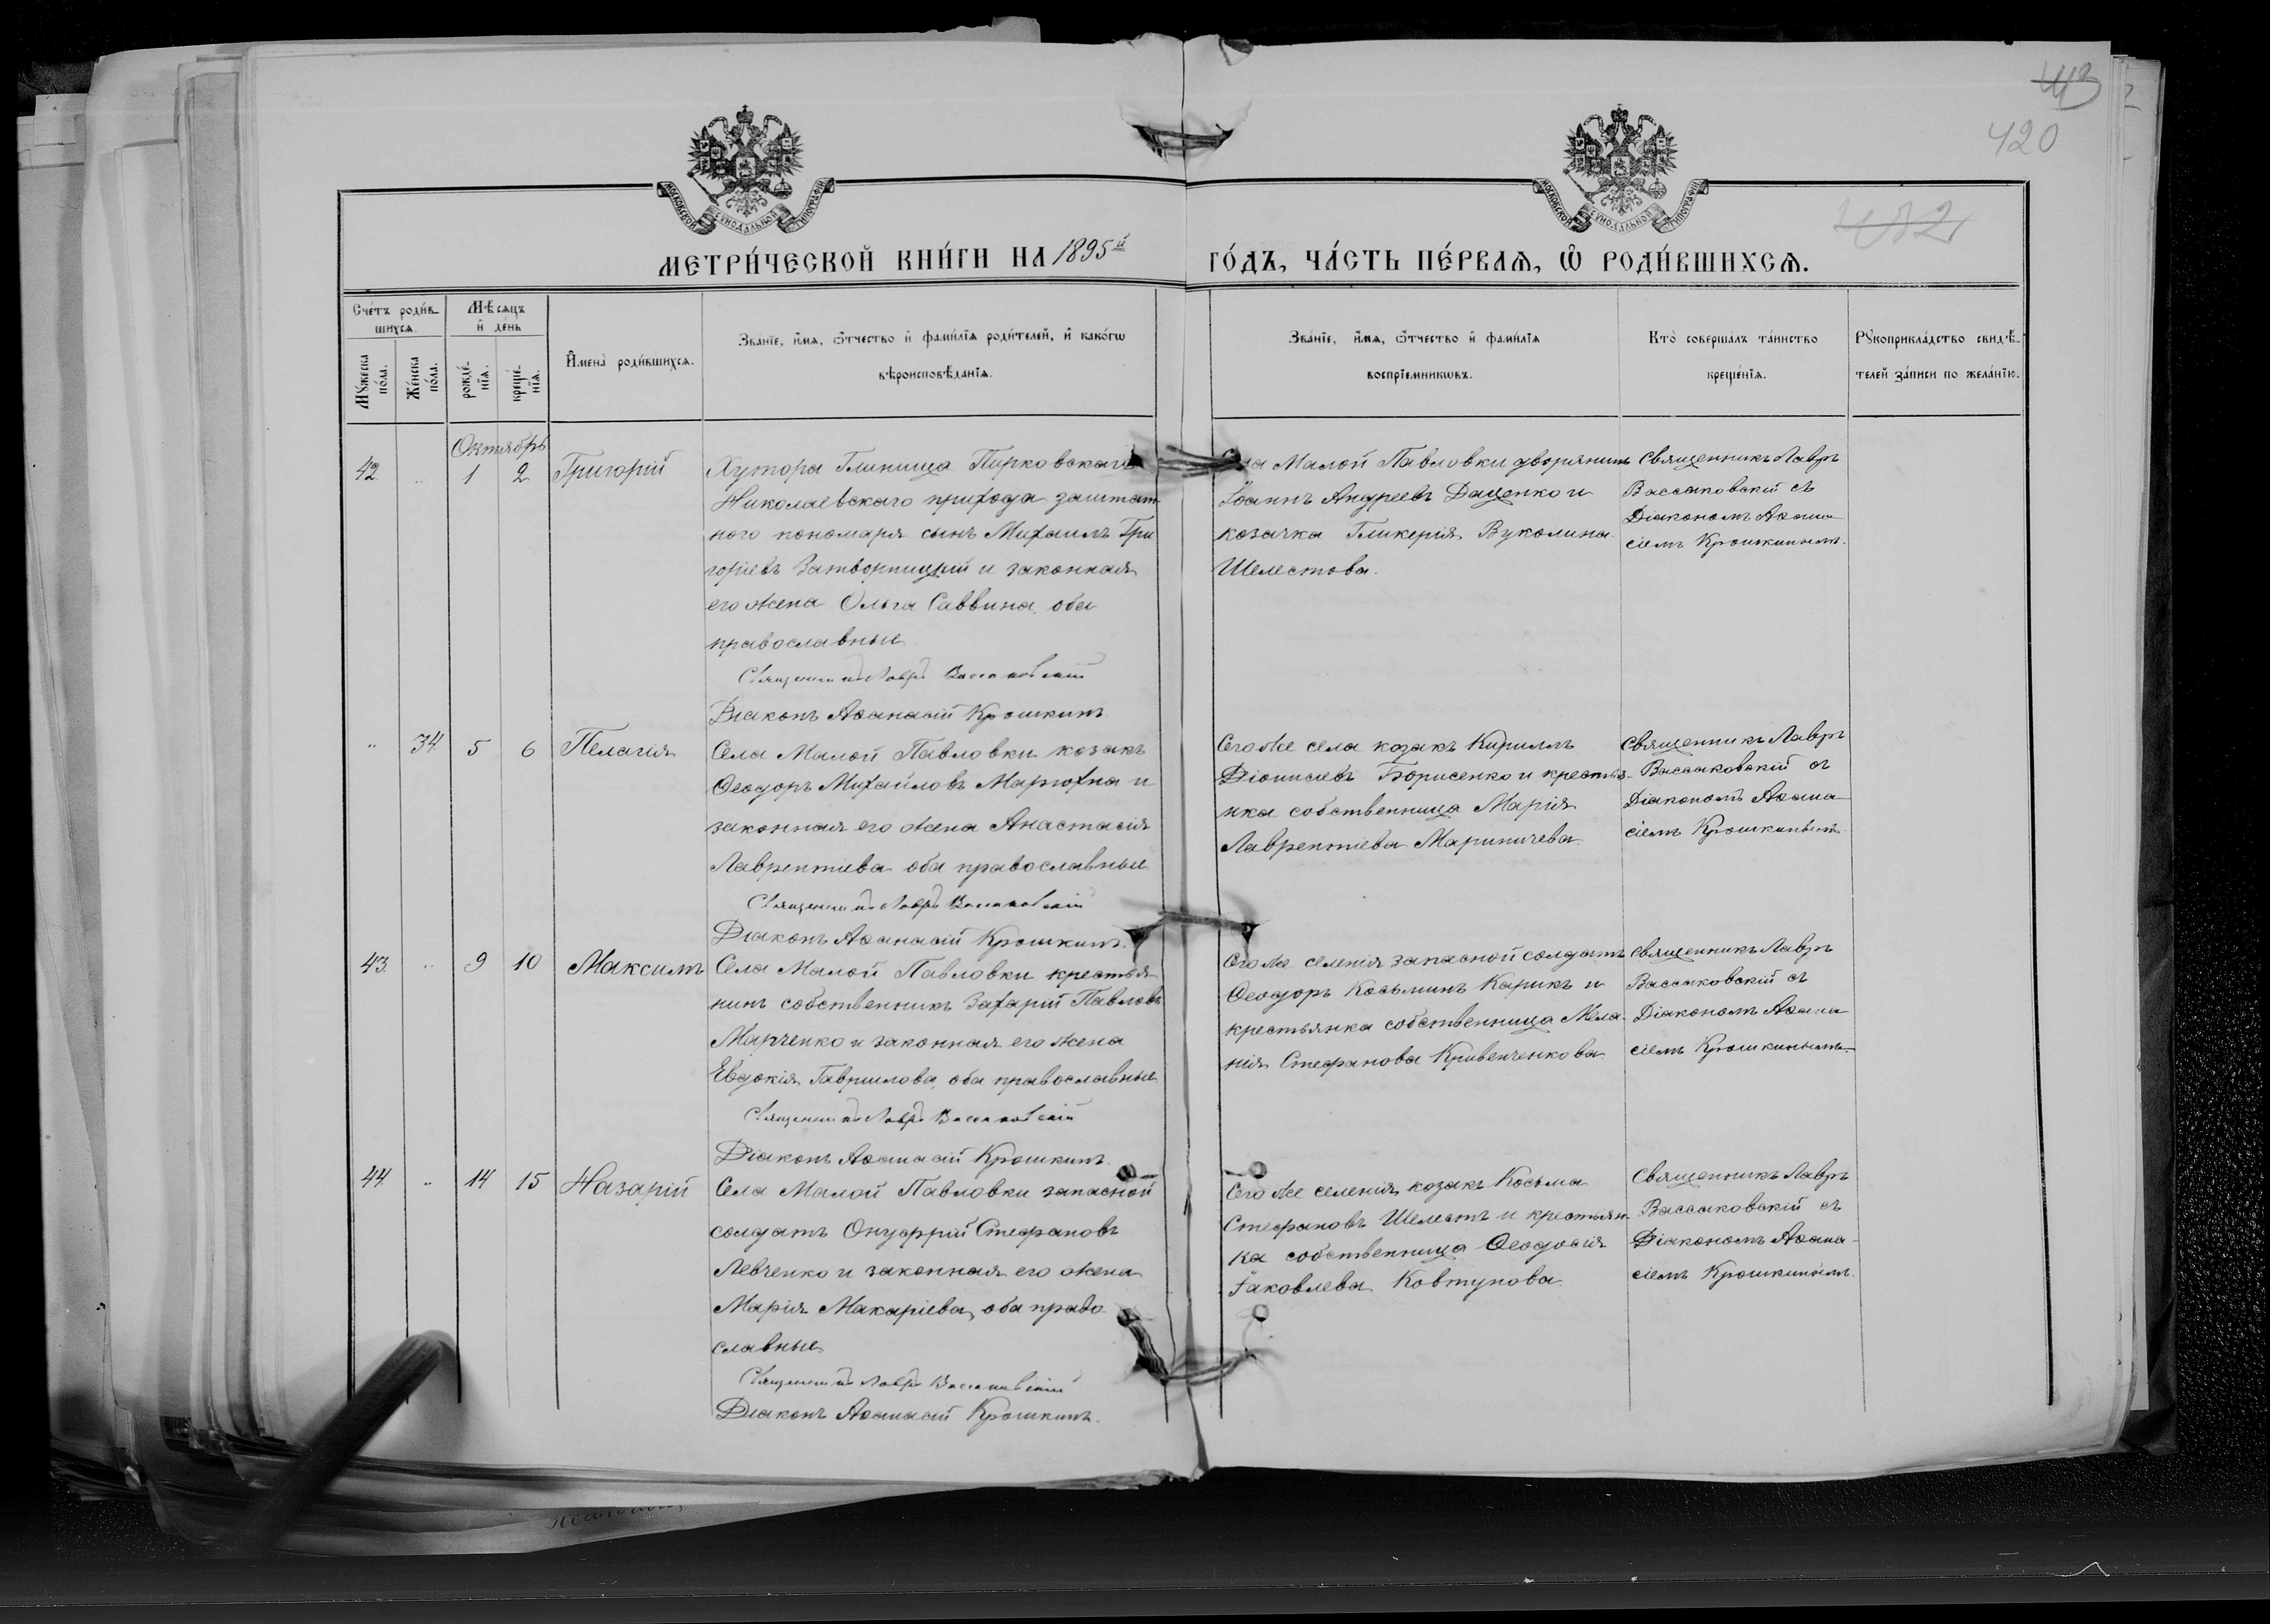 413
420
482
МОСКОВСКОЙ СѴНОДАЛЬНОЙ ТИПОГРАФІИ
МОСКОВСКОЙ СѴНОДАЛЬНОЙ ТИПОГРАФІИ
МЕТРИ́ЧЕСКОЙ КНИ́ГИ НА 1895й ГО́ДЪ, ЧА́СТЬ ПЕ́РВАѦ, Ѡ РОДИ́ВШИХСѦ.
Счётъ роди́в-
шихсѧ.
Мꙋжеска по́ла.
Же́нска по́ла.
Мѣсѧцъ
и де́нь
рожде́-
нїѧ.
креще́-
нїѧ.
Имена̀ роди́вшихсѧ.
Зва́нїе, и́мѧ, ѻ́тчество и фами́лїѧ роди́телей, и како́гѡ
вѣроисповѣ́данїѧ.
Зва́нїе, и́мѧ, ѻ́тчество и фами́лїѧ
воспрїе́мникѡвъ.
Кто̀ соверша́лъ та́инство
креще́нїѧ.
Рꙋкоприкла́дство свидѣ́-
телей за́писи по жела́нїю.
Октябрь
42 .. 1 2 Григорій
Хутора Глинища Пирковскаго
Николаевскаго прихода заштат
наго пономаря сынъ Михаилъ Гри
горіевъ Затворницкій и законная
его жена Ольга Саввина, оба
православные
Священникъ Лавръ Вассаковскій
Діаконъ Аѳанасій Крошкинъ.
Села Малой Павловки дворянинъ
Іоаннъ Андреевъ Даценко и
козачка Гликерія Вуколина
Шелестова.
Священникъ Лавръ
Вассаковскій съ
Діакономъ Аѳана-
сіемъ Крошкинымъ.
.. 34 5 6 Пелагія
Села Малой Павловки козакъ
Ѳеодоръ Михайловъ Марюхна и
законная его жена Анастасія
Лаврентіева оба православные
Священникъ Лавръ Вассаковскій
Діаконъ Аѳанасій Крошкинъ.
Того же села козакъ Кириллъ
Діонисіевъ Борисенко и крестья-
нка собственница Марія
Лаврентіева Мариничева.
Священникъ Лавръ
Вассаковскій съ
Діакономъ Аѳана-
сіемъ Крошкинымъ.
43 .. 9 10 Максимъ
Села Малой Павловки крестья
нинъ собственникъ Захарій Павловъ
Марченко и законная его жена
Евдокія Гавриилова, оба православные
Священникъ Лавръ Вассаковскій
Діаконъ Аѳанасій Крошкинъ.
Того же селенія запасной солдатъ
Ѳеодоръ Косьминъ Карикъ и
крестьянка собственница Мела-
нія Стефанова Кривенченкова.
Священникъ Лавръ
Вассаковскій съ
Діакономъ Аѳана-
сіемъ Крошкинымъ.
44 .. 14 15 Назарій
Села Малой Павловки запасной
солдатъ Онуфрій Стефановъ
Левченко и законная его жена
Марія Макаріева, оба право
славные
Священникъ Лавръ Вассаковскій
Діаконъ Аѳанасій Крошкинъ.
Того же селенія козакъ Косьма
Стефановъ Шелестъ и крестьян-
ка собственница Ѳеодосія
Іаковлева Ковтунова.
Священникъ Лавръ
Вассаковскій съ
Діакономъ Аѳана-
сіемъ Крошкинымъ.